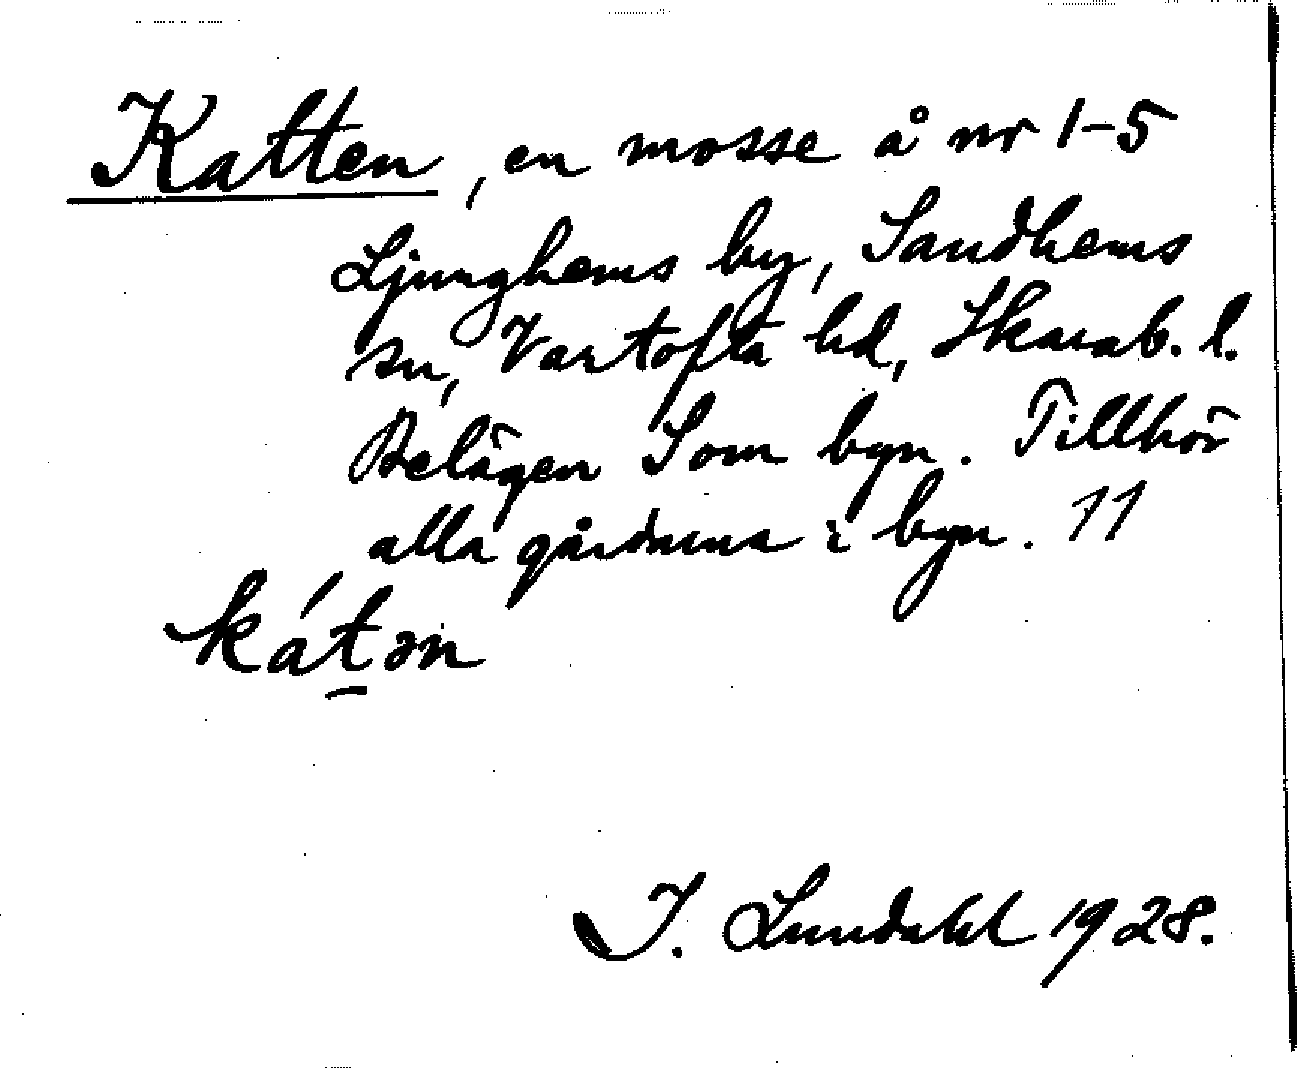 Katten, en mosse å nr 1-5
Ljunghems by, Sandhems
sn, Vartofta hd, Skarab. l.
Belägen S om byn. Tillhör
alla gårdarna i byn. 11
kát̠ən
I. Lundahl 1928.